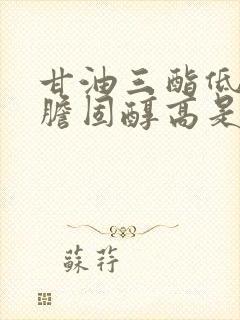 甘油三酯低
胆固醇高是
蘇荇